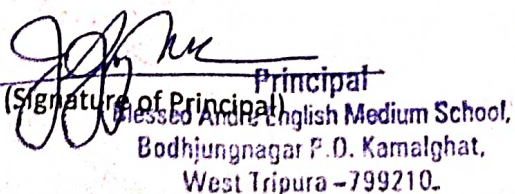 Principal
(Signature of Principal)
Blessed Andre English Medium School,
Bodhjungnagar P.O. Kamalghat,
West Tripura - 799210.